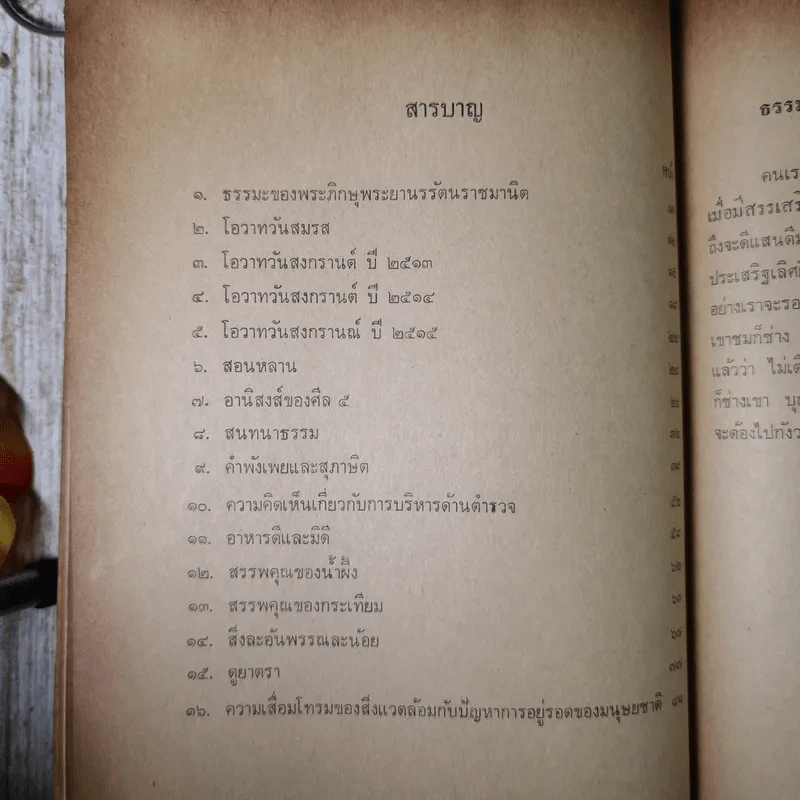 สารบาญ
๑. ธรรมะของพระภิกษุพระยานรรัตนราชมานิต
๒. โอวาทวันสมรส
๓. โอวาทวันสงกรานต์ ปี ๒๕๑๓
๔. โอวาทวันสงกรานต์ ปี ๒๕๑๔
๕. โอวาทวันสงกรานณ์ ปี ๒๕๑๕
๖. สอนหลาน
๗. อานิสงส์ของศีล ๕
๘. สนทนาธรรม
๙. คำพังเพยและสุภาษิต
๑๐. ความคิดเห็นเกี่ยวกับการบริหารด้านตำรวจ
๑๑. อาหารดีและมิดี
๑๒. สรรพคุณของน้ำผึ้ง
๑๓. สรรพคุณของกระเทียม
๑๔. สิ่งละอันพรรณละน้อย
๑๕. ดูยาตรา
๑๖. ความเสื่อมโทรมของสิ่งแวดล้อมกับปัญหาการอยู่รอดของมนุษยชาติ
ธรรม
คนเร
เมื่อมีสรรเสริ
ถึงจะดีแสนดี
ประเสริฐเลิศ
อย่างเราจะรอ
เขาชมก็ช่าง
แล้วว่า ไม่เ
ก็ช่างเขา
จะต้องไปกังว